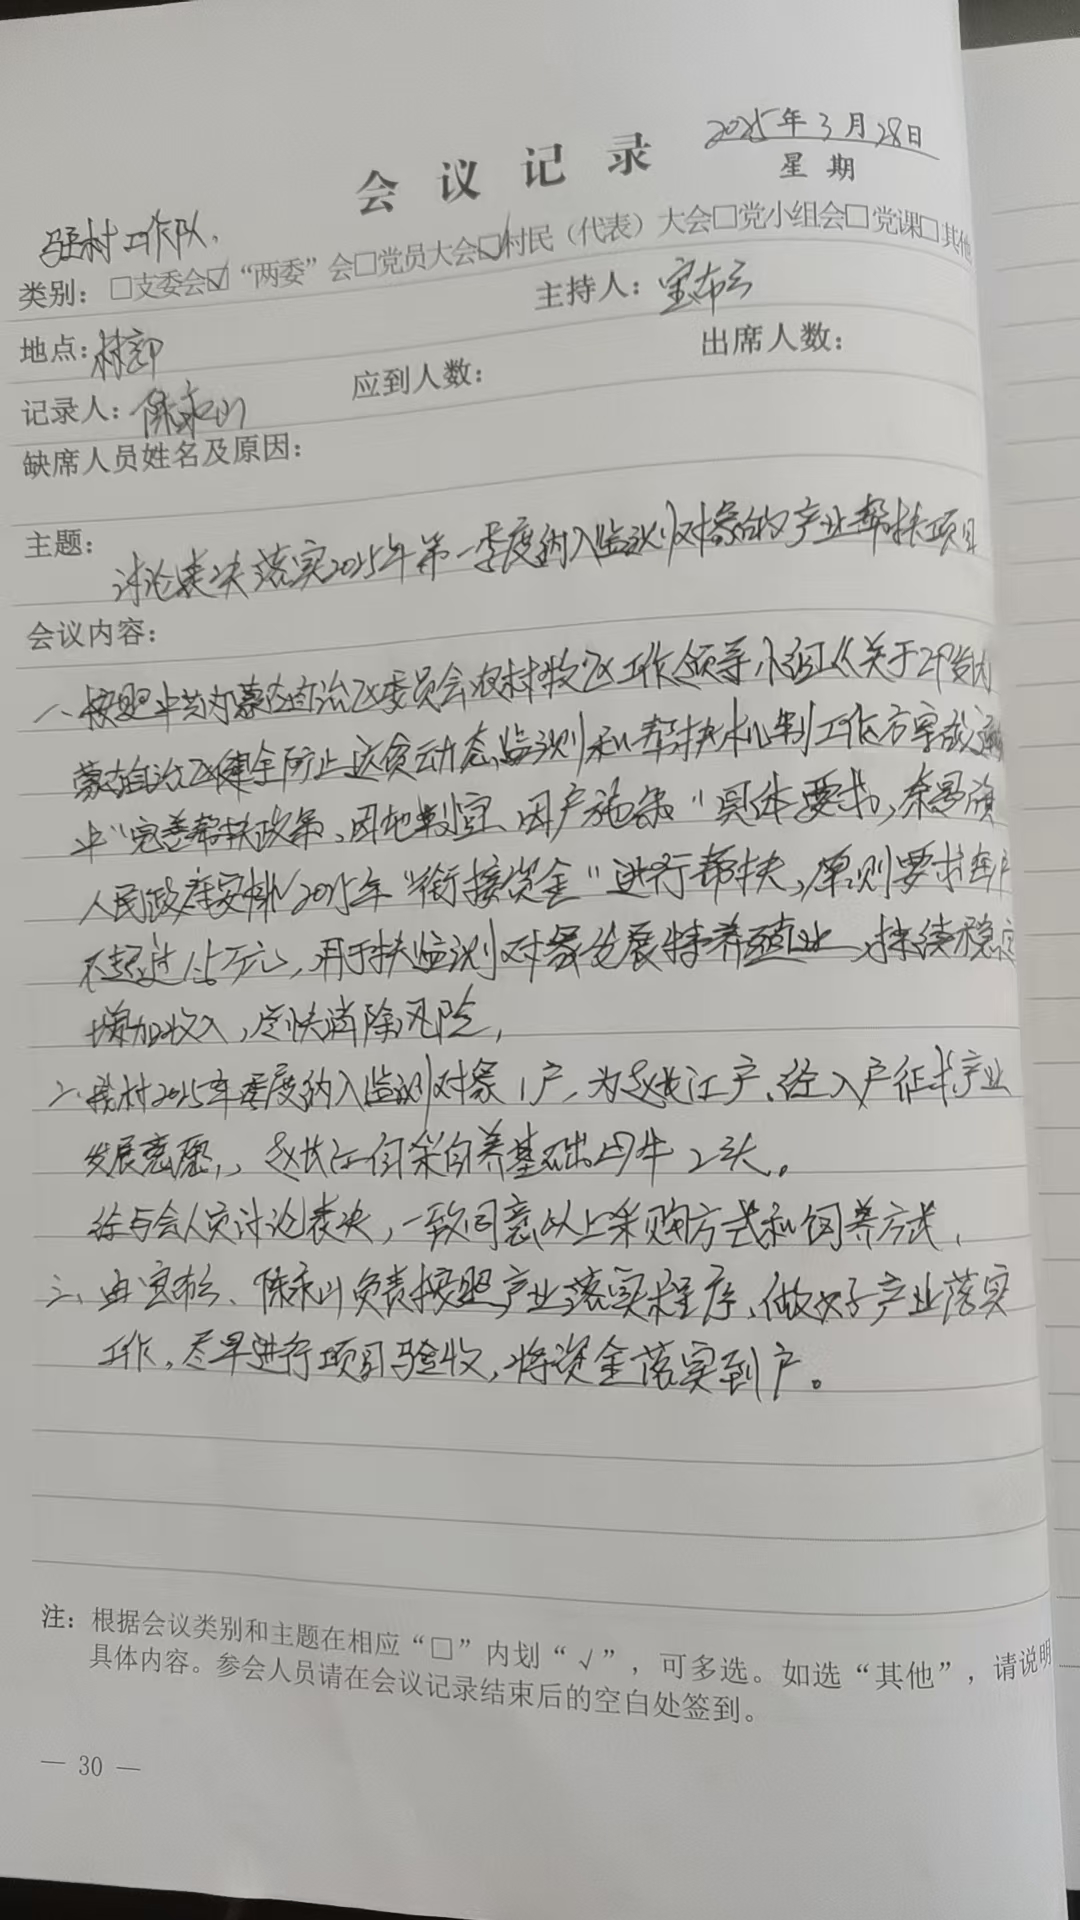 2025年3月28日
会议记录
星期
驻村工作队、
类别：□支委会☑“两委”会□党员大会☑村民（代表）大会□党小组会□党课□其他
主持人：宝布云
地点：村部
出席人数：
应到人数：
记录人：陈永山
缺席人员姓名及原因：
主题：
讨论表决落实2025年第一季度纳入监测对象的产业帮扶项目
会议内容：
一、按照中共内蒙古自治区委员会农村牧区工作领导小组《关于印发内
蒙古自治区健全防止返贫动态监测和帮扶机制工作方案的通
中“完善帮扶政策、因地制宜、因户施策”具体要求，奈曼旗
人民政府安排2025年“衔接资金”进行帮扶，原则要求每户
不超过1.5万元，用于扶监测对象发展特养殖业，持续稳定
增加收入，尽快消除风险，
二、我村2025年季度纳入监测对象1户，为赵长江户、经入户征求产业
发展意愿，、赵长江自采自养基础母牛2头。
经与会人员讨论表决，一致同意以上采购方式和饲养方式，
三、由宝布云、陈永山负责按照产业落实程序、做好产业落实
工作，尽早进行项目验收，将资金落实到户。
注：根据会议类别和主题在相应“□”内划“√”，可多选。如选“其他”，请说明
具体内容。参会人员请在会议记录结束后的空白处签到。
— 30 —